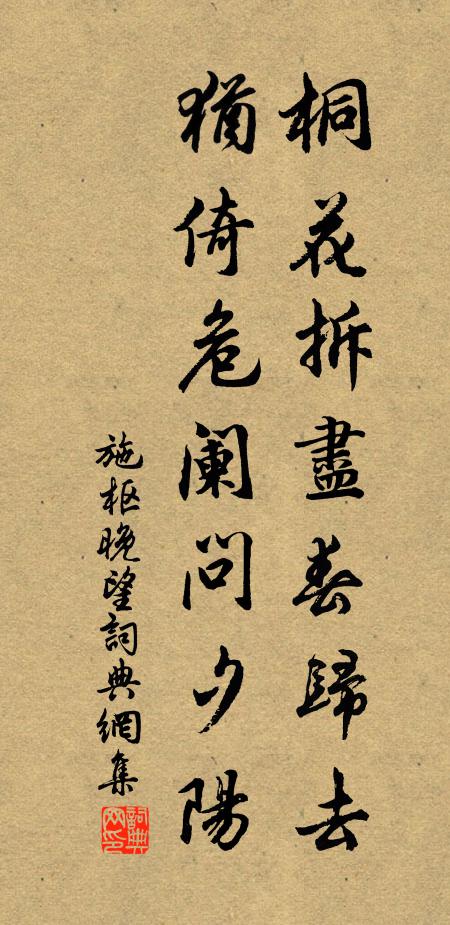 桐花拆盡春歸去
猶倚危闌問夕陽
施枢晚望詞典網集
詞典網印